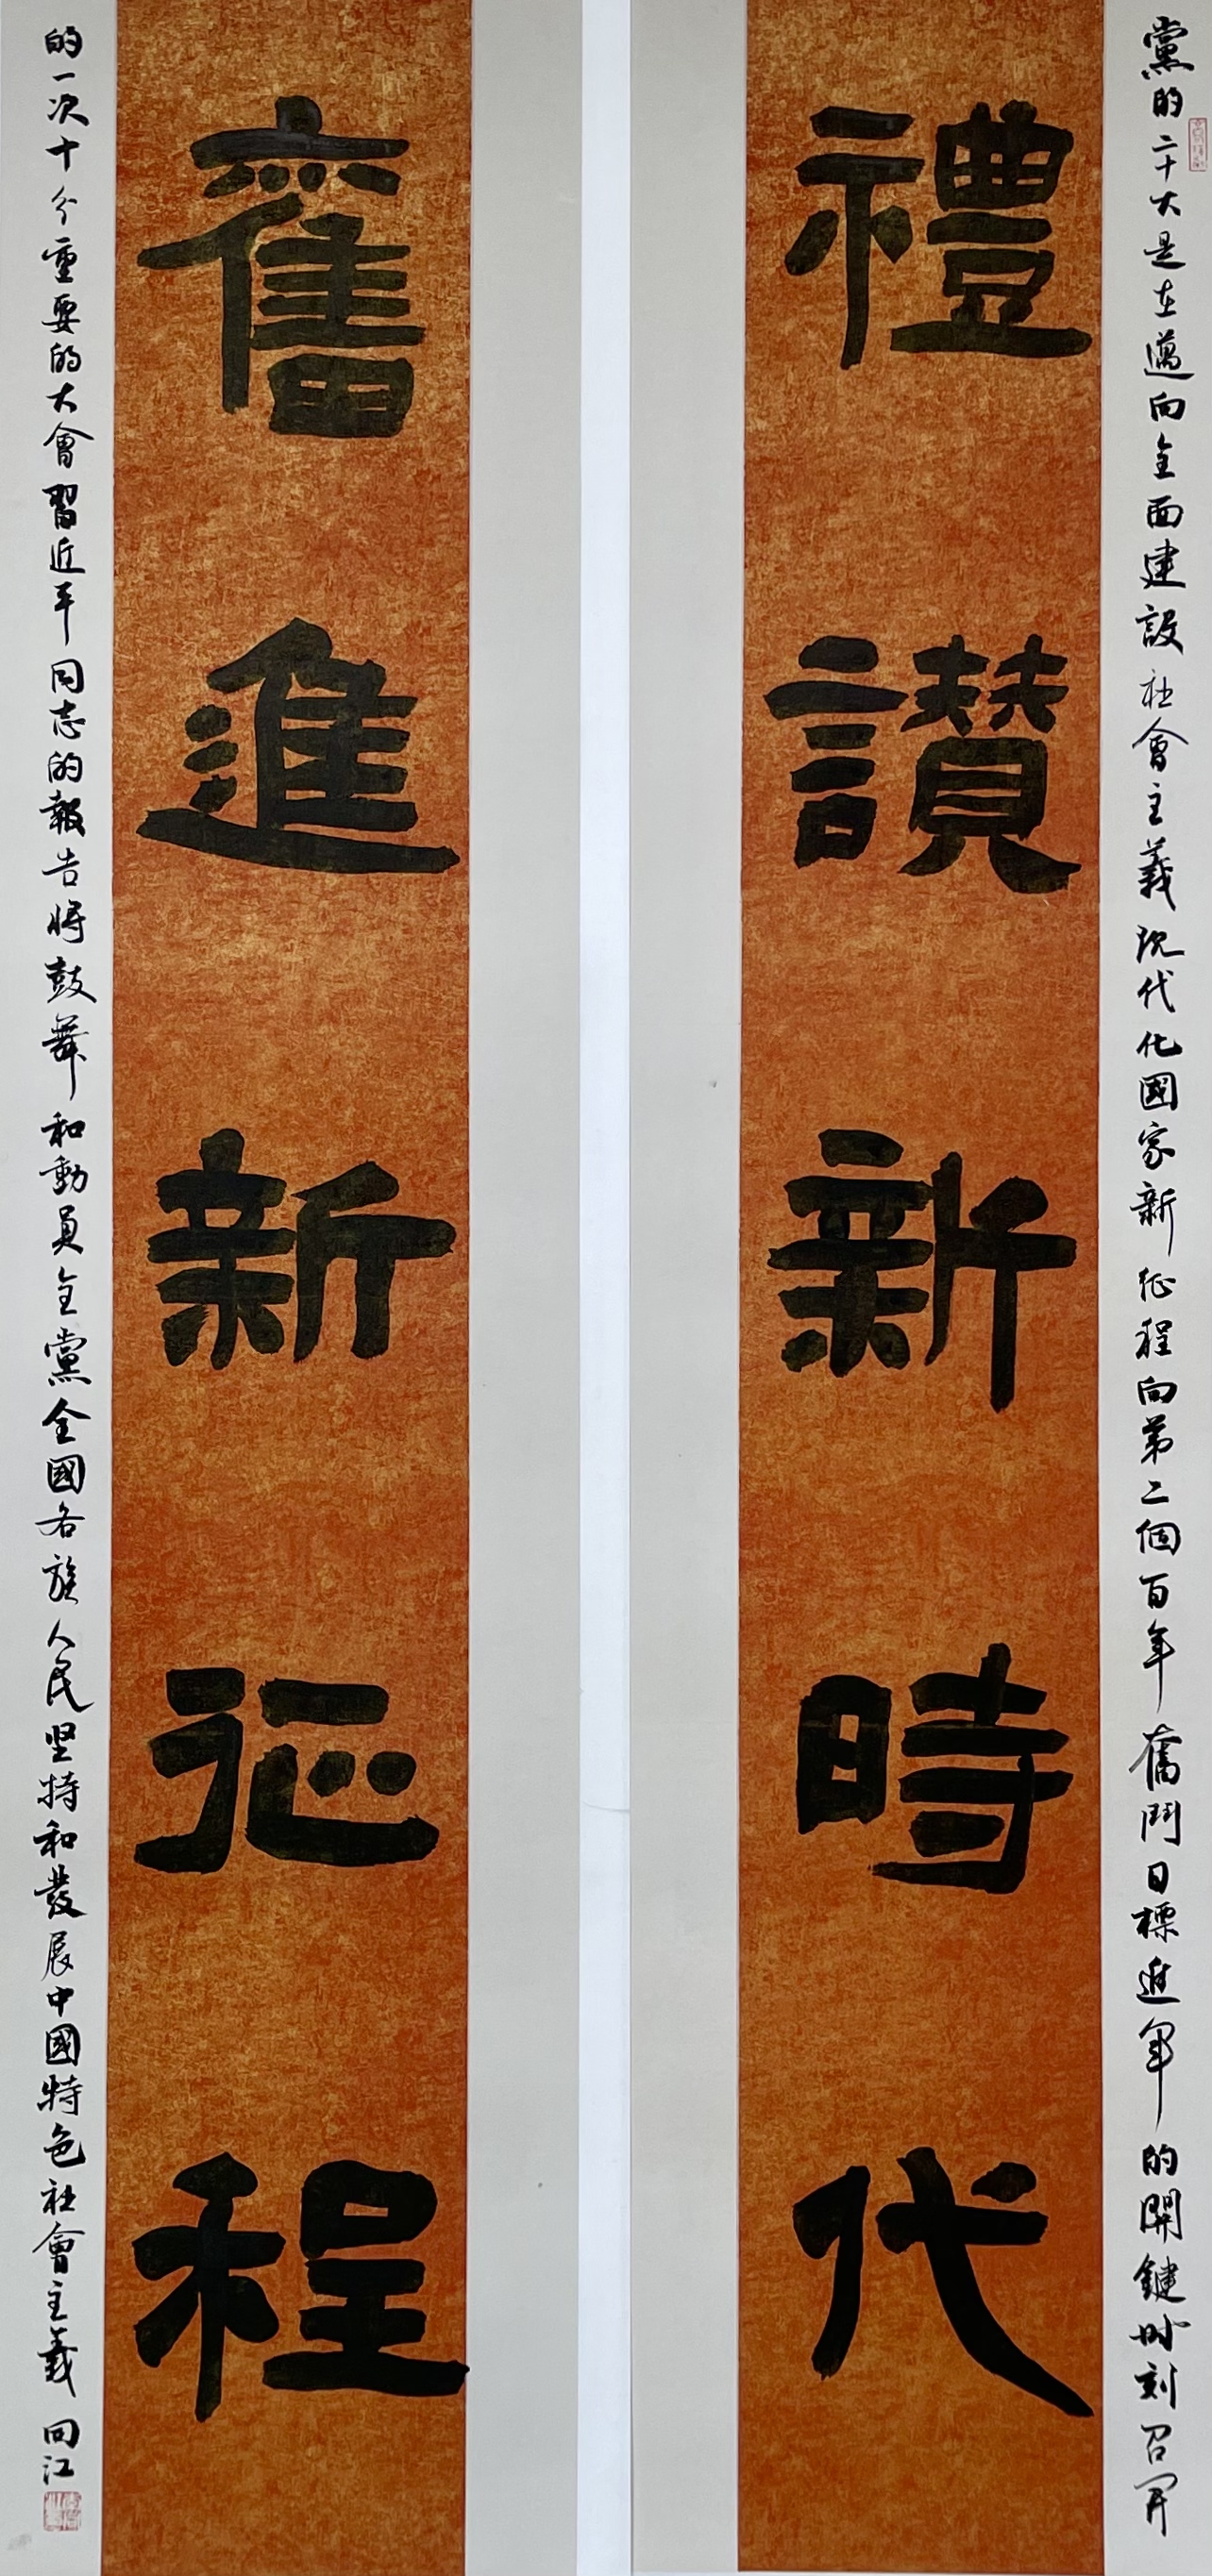 黨的二十大是在邁向全面建設社會主義現代化國家新征程向第二個百年奮鬥目標進軍的關鍵時刻召開
禮讚新時代
奮進新征程
的一次十分重要的大會習近平同志的報告將鼓舞和動員全黨全國各族人民坚持和發展中國特色社會主義 向江